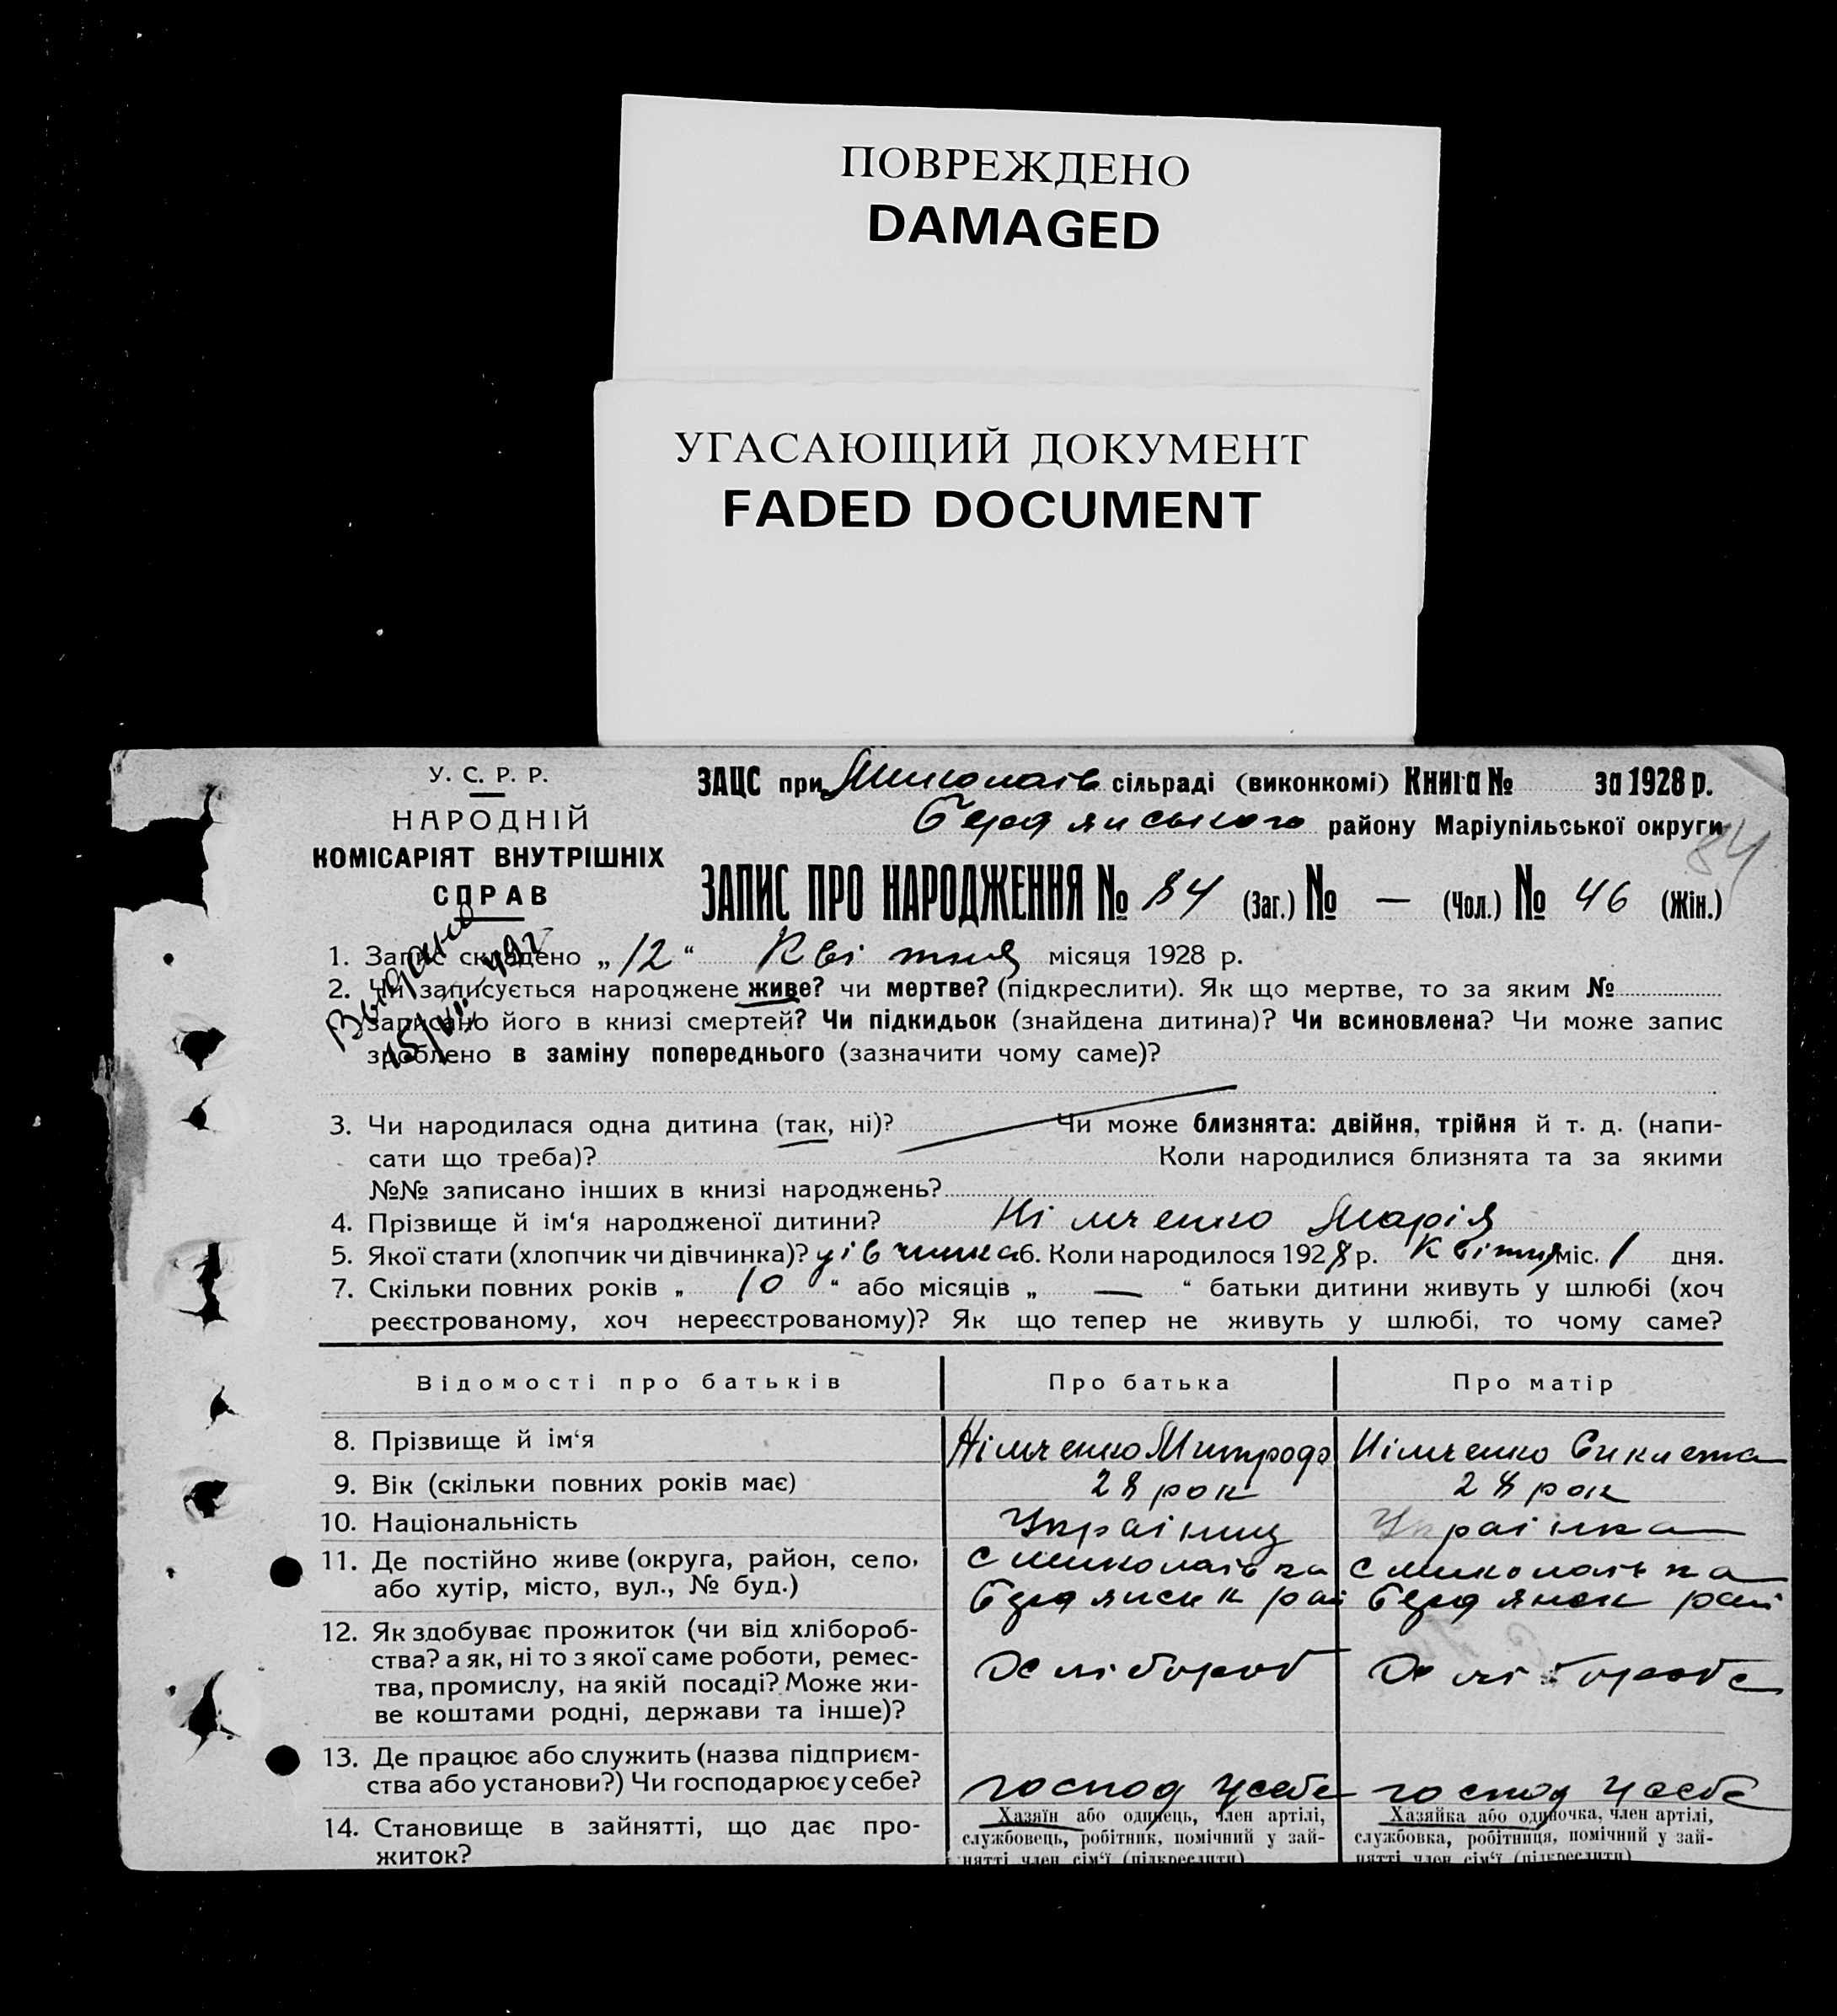 ПОВРЕЖДЕНО
DAMAGED
УГАСАЮЩИЙ ДОКУМЕНТ
FADED DOCUMENT
У. С. Р. Р.
НАРОДНІЙ
КОМІСАРІЯТ ВНУТРІШНІХ
СПРАВ
ЗАЦС при Миколаїв сільраді (виконкомі) Книга № за 1928 р.
Бердянського району Маріупільської округи
84
ЗАПИС ПРО НАРОДЖЕННЯ № 84 (Заг.) № — (Чол.) № 46 (Жін.)
1. Запис складено „12“ Квітня місяця 1928 р.
2. Чи записується народжене живе? чи мертве? (підкреслити). Як що мертве, то за яким №
записано його в книзі смертей? Чи підкидьок (знайдена дитина)? Чи всиновлена? Чи може запис
зроблено в заміну попереднього (зазначити чому саме)?
3. Чи народилася одна дитина (так, ні)? Чи може близнята: двійня, трійня й т. д. (напи-
сати що треба)? Коли народилися близнята та за якими
№№ записано інших в книзі народжень?
4. Прізвище й ім‘я народженої дитини? Німченко Марія
5. Якої стати (хлопчик чи дівчинка)? дівчинка 6. Коли народилося 1928 р. Квітня міс. 1 дня.
7. Скільки повних років „ 10 “ або місяців „ — “ батьки дитини живуть у шлюбі (хоч
реєстрованому, хоч нереєстрованому)? Як що тепер не живуть у шлюбі, то чому саме?
Відомості про батьків Про батька Про матір
8. Прізвище й ім‘я Німченко Митрофа Німченко
9. Вік (скільки повних років має) 28 рок 28 рок
10. Національність Українец Українка
11. Де постійно живе (округа, район, село, с Миколаівка с Миколаівка
або хутір, місто, вул., № буд.) Бердянськ рай Бердянск рай
12. Як здобуває прожиток (чи від хлібороб-
ства? а як, ні то з якої саме роботи, ремес- Хлібороб Хлібороб
тва, промислу, на якій посаді? Може жи-
ве коштами родні, держави та інше)?
13. Де працює або служить (назва підприєм-
ства або установи?) Чи господарює у себе? господ у себе господ у себе
14. Становище в зайнятті, що дає про-
житок?
Хазяїн або одинець, член артілі,
службовець, робітник, помічний у зай-
нятті член сім‘ї (підкреслити)
Хазяйка або одиночка, член артілі,
службовка, робітниця, помічний у зай-
нятті член сім‘ї (підкреслити)